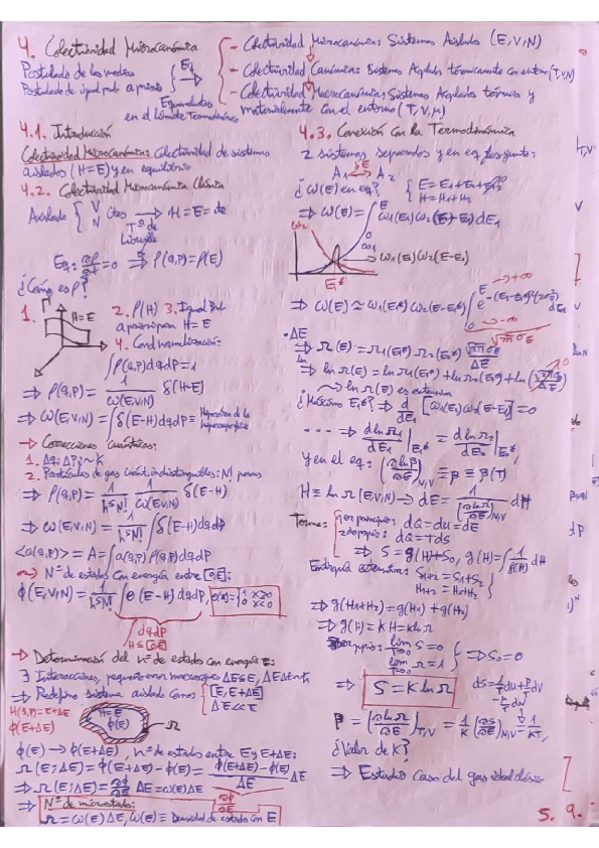 4. Colectividad Microcanónica
Postulado de los medios
Postulado de igual prob a priori
Eq
Equivalentes
en el Límite Termodinámico
- Colectividad Microcanónica: Sistemas Aislados (E,V,N)
- Colectividad Canónica: Sistemas Acoplados térmicamente con entorno (T,V,N)
- Colectividad Macrocanónica: Sistemas Acoplados térmica y
materialmente con el entorno (T,V,μ)
4.1. Introducción
Colectividad Microcanónica: Colectividad de sistemas
aislados (H=E) y en equilibrio
4.2. Colectividad Microcanónica Clásica
Aislado { V N ctes → H=E=cte
Tª de
Liouville
Eq: ∂ρ/∂t=0 ⇒ ρ(q,p)=ρ(E)
¿Cómo es ρ?
1. H=E
2. ρ(H) 3. Igual Prob
a priori para H=E
4. Cond normalización:
∫ρ(q,p)dqdp=1
⇒ ρ(q,p)= 1/ω(E,V,N) δ(H-E)
⇒ ω(E,V,N)=∫δ(H-E)dqdp ≡ Hipersup de la
hipersuperficie
→ Correcciones cuánticas:
1. Δqᵢ Δpᵢ ~ h
2. Partículas de gas cuánt. indistinguibles: N! perms
⇒ ρ(q,p)= 1/(hˢN!) 1/ω(E,V,N) δ(E-H)
⇒ ω(E,V,N)= 1/(hˢN!) ∫δ(E-H)dqdp
<a(q,p)> = A=∫a(q,p)ρ(q,p)dqdp
~> Nº de estados con energía entre [0,E]:
φ(E,V,N)= 1/(hˢN!) ∫θ(E-H)dqdp, θ(x)={1 x≥0 0 x<0
∫dqdp
H≤[0,E]
→ Determinación del nº de estados con energía E:
∃ Interacciones, pequeño error macroscópico ΔE≪E, ΔEΔt~h
⇒ Redefino sistema aislado como: { [E,E+ΔE]
ΔE≪E
H(q,p)=E+ΔE
φ(E+ΔE)
H=E
φ(E)
Ω
φ(E) → φ(E+ΔE), nº de estados entre E y E+ΔE:
Ω(E;ΔE)=φ(E+ΔE)-φ(E)= (φ(E+ΔE)-φ(E))/ΔE ΔE
⇒ Ω(E;ΔE)= ∂φ/∂E ΔE=ω(E)ΔE
∂φ/∂E
⇒ Nº de microestados:
Ω=ω(E)ΔE, ω(E)≡ Densidad de estados con E
4.3. Conexión con la Termodinámica
2 sistemas separados y en eq, los junto:
A₁ ↔ A₂
δE
¿ω(E) en eq? { E=E₁+E₂+
H=H₁+H₂
⇒ ω(E)=∫₀ᴱ ω₁(E₁)ω₂(E-E₁)dE₁
ω₂
ω₁
ω₁(E₁)ω₂(E-E₁)
E₁*
⇒ ω(E)≃ω₁(E₁*)ω₂(E-E₁*)∫₀ᴱ e^-(E₁-E₁*)²/(2σ_E²) dE₁
→+∞
→-∞
√2π σ_E
·ΔE
⇒ Ω(E)=Ω₁(E₁*)Ω₂(E₂*) √2πσ_E/ΔE
ln
⇒ ln Ω(E)=ln Ω₁(E₁*)+ln Ω₂(E₂*)+ln(√2πσ_E/ΔE)
~> ln Ω(E) es extensiva
¿Máximo E₁*? ⇒ d/dE₁ [ω₁(E₁)ω₂(E-E₁)]=0
··· ⇒ dlnΩ₁/dE₁|E₁* = dlnΩ₂/dE₂|E₂*
y en el eq: (∂lnΩ/∂E)N,V ≡ β ≡ β(T)
H≡ln Ω(E,V,N) → dE= 1/(∂lnΩ/∂E)N,V dH
Termo: { 1er principio: dQ=dU=dE
2do ppio: dQ=TdS
⇒ S=g(H)+S₀, g(H)=∫ 1/β(H) dH
Entropía extensiva: S₁₊₂=S₁+S₂
H₁₊₂=H₁+H₂
⇒ g(H₁+H₂)=g(H₁)+g(H₂)
⇒ g(H)=KH=KlnΩ
3er ppio: lim T→0 S=0
lim T→0 Ω=1 } ⇒ S₀=0
⇒ S=K ln Ω
dS= 1/T dU + P/T dV
β=(∂lnΩ/∂E)= 1/K (∂S/∂E)N,V = 1/KT
¿Valor de K?
⇒ Estudio caso del gas ideal clásico
5. 9.